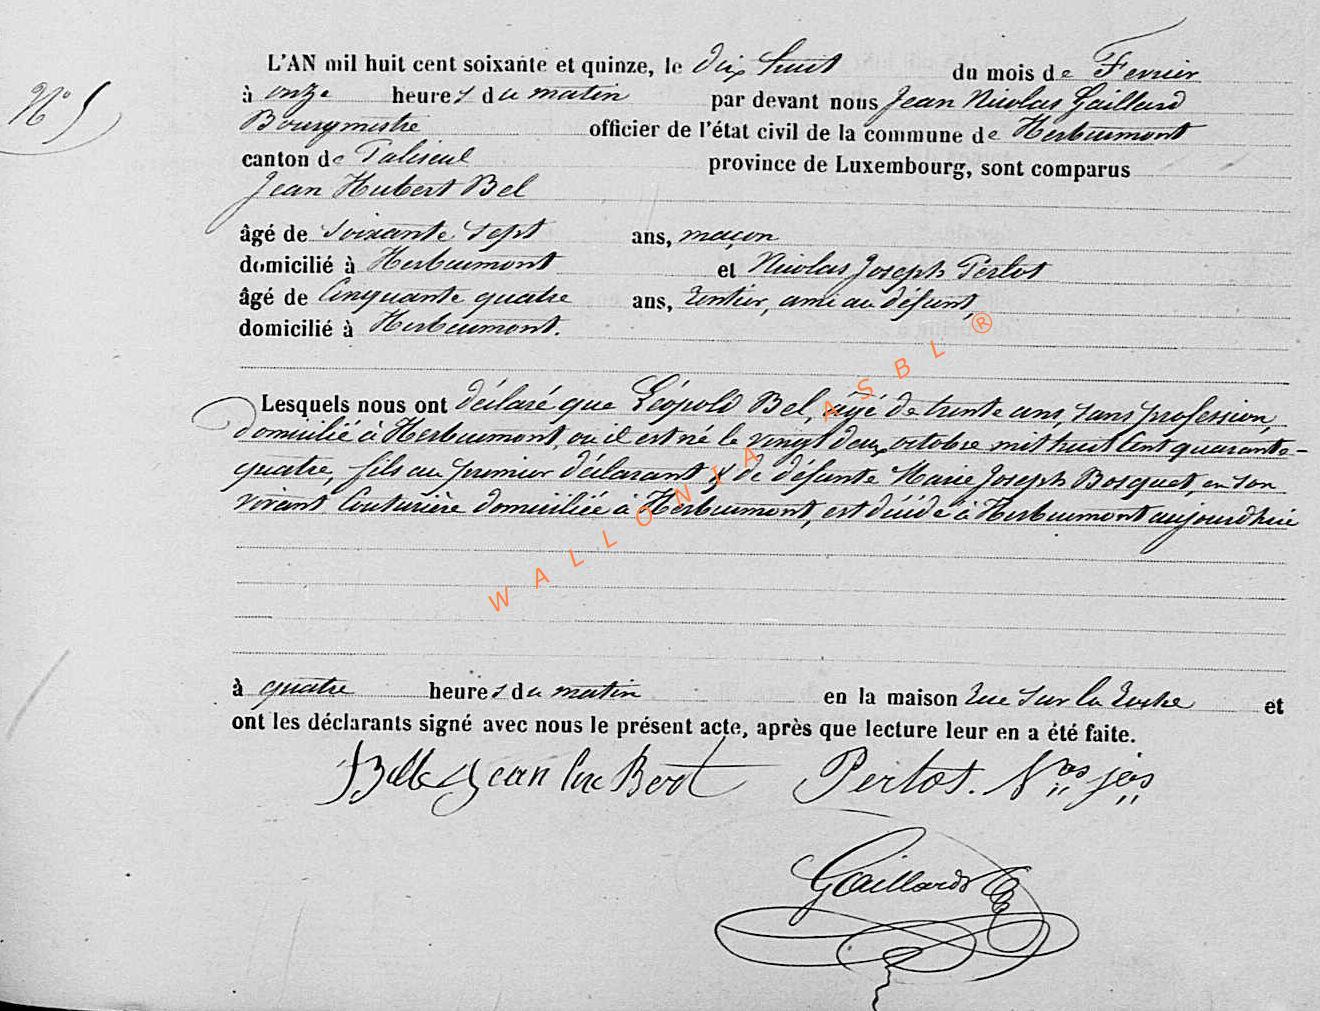 N° 5
L'AN mil huit cent soixante et quinze, le dix huit du mois de Fevrier
à onze heures du matin par devant nous Jean Nicolas Gaillard
Bourgmestre officier de l'état civil de la commune de Herbeumont
canton de Paliseul province de Luxembourg, sont comparus
Jean Hubert Bel
âgé de soixante sept ans, maçon
domicilié à Herbeumont et Nicolas Joseph Perlot
âgé de Cinquante quatre ans, rentier, ami au défunt,
domicilié à Herbeumont.
Lesquels nous ont déclaré que Léopold Bel, âgé de trente ans, sans profession,
domicilié à Herbeumont, où il est né le vingt deux octobre mil huit Cent quarante-
quatre, fils au premier déclarant & de défunte Marie Joseph Bosquet, en son
vivant Couturière domiciliée à Herbeumont, est décédé à Herbeumont aujourdhui
à quatre heures du matin en la maison rue sur la roche et
ont les déclarants signé avec nous le présent acte, après que lecture leur en a été faite.
Jean Perlot. N.as j.os
Gaillard
WALLONIA ASBL ®